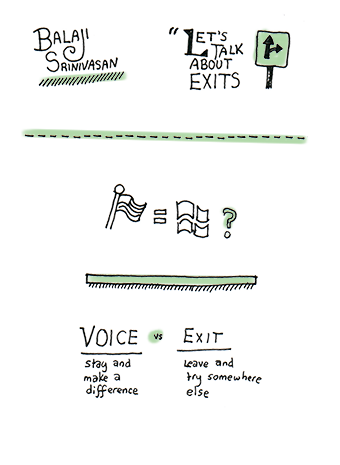 BALAJI
SRINIVASAN
"LET'S
TALK
ABOUT
EXITS
= ?
VOICE vs EXIT
stay and
make a
difference
Leave and
try somewhere
else